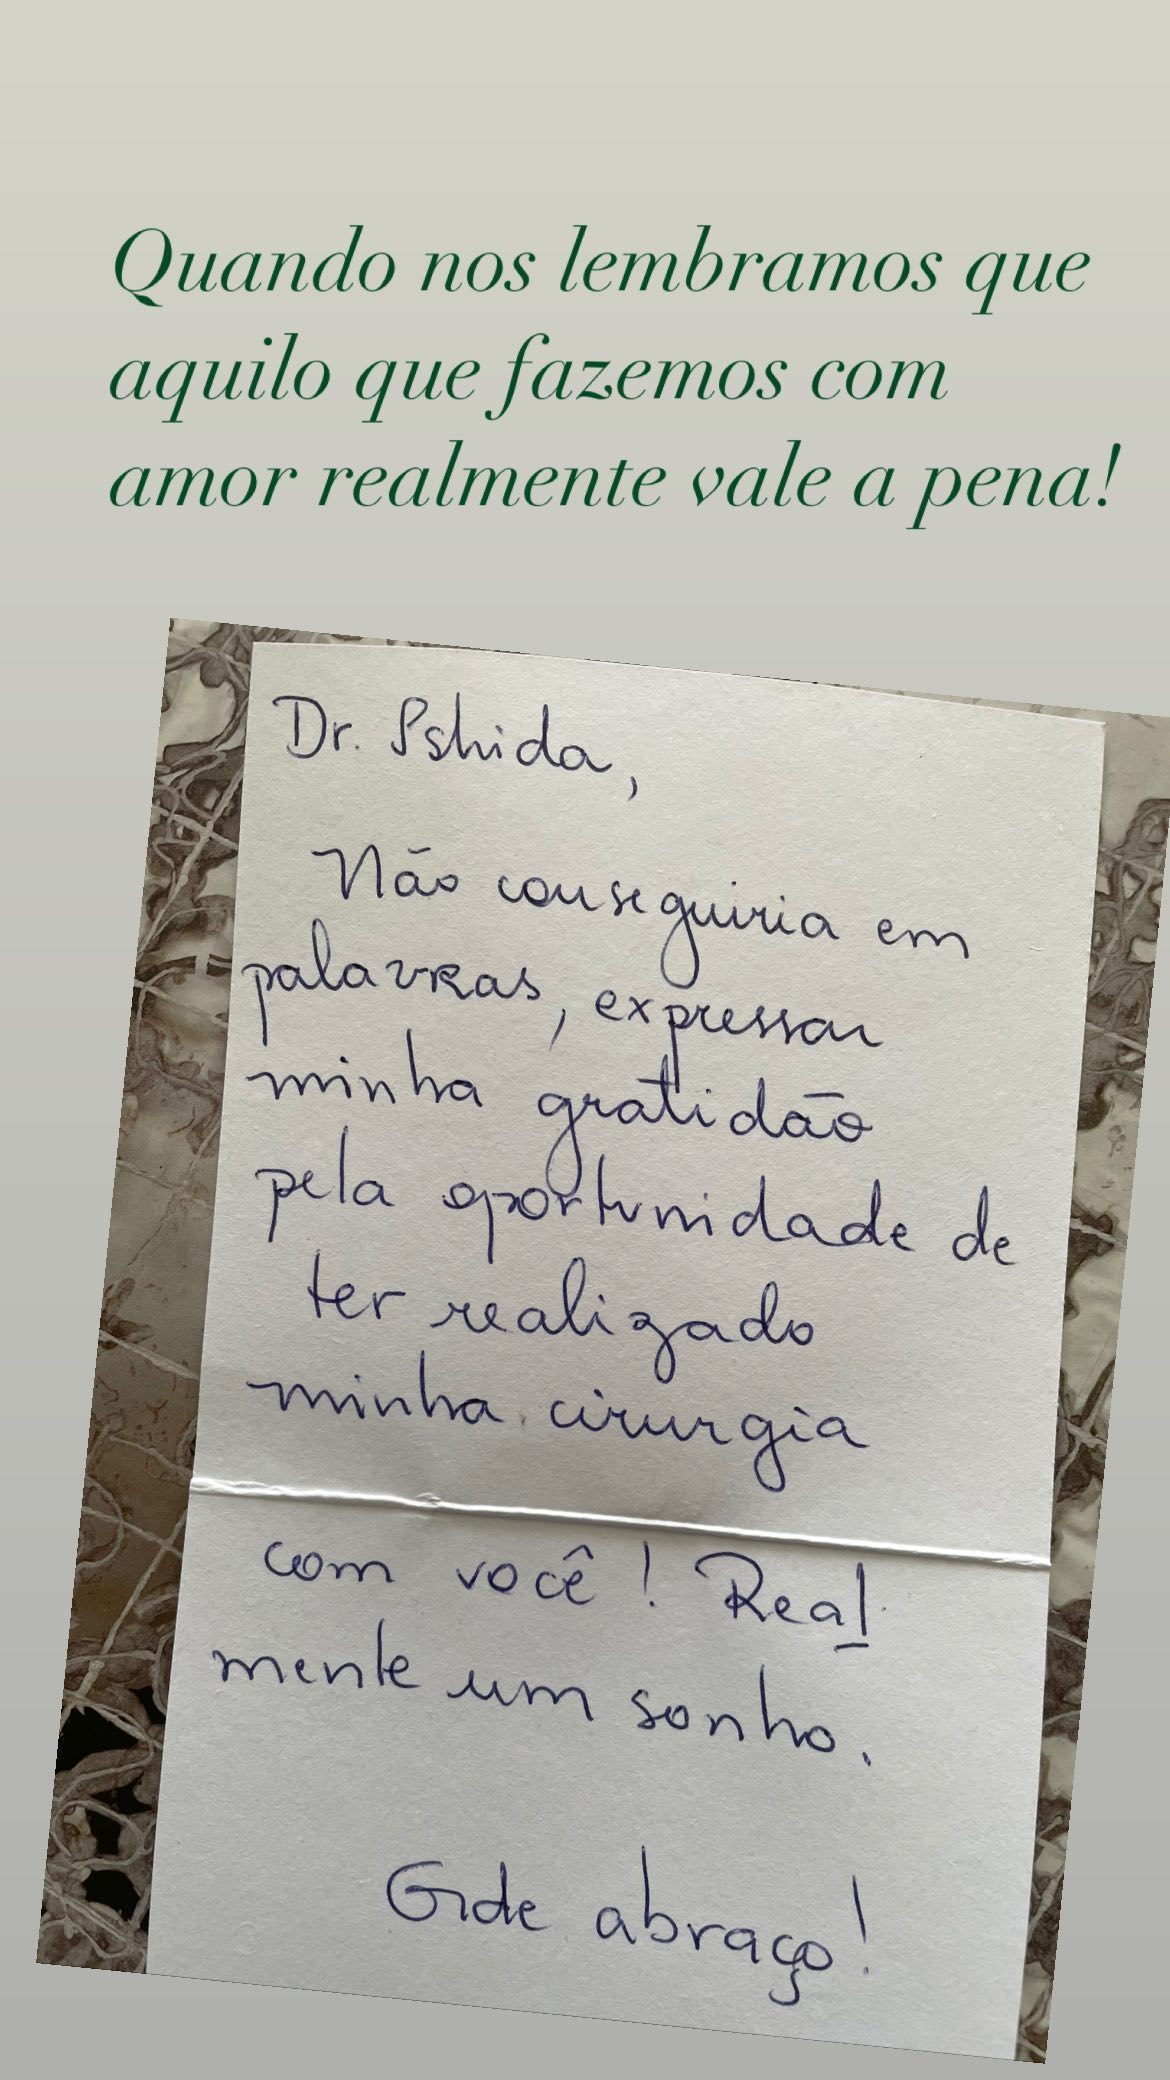 Quando nos lembramos que
aquilo que fazemos com
amor realmente vale a pena!
Dr. Ishida,
Não conseguiria em
palavras, expressar
minha gratidão
pela oportunidade de
ter realizado
minha cirurgia
com você! Real
mente um sonho.
Gde abraço!